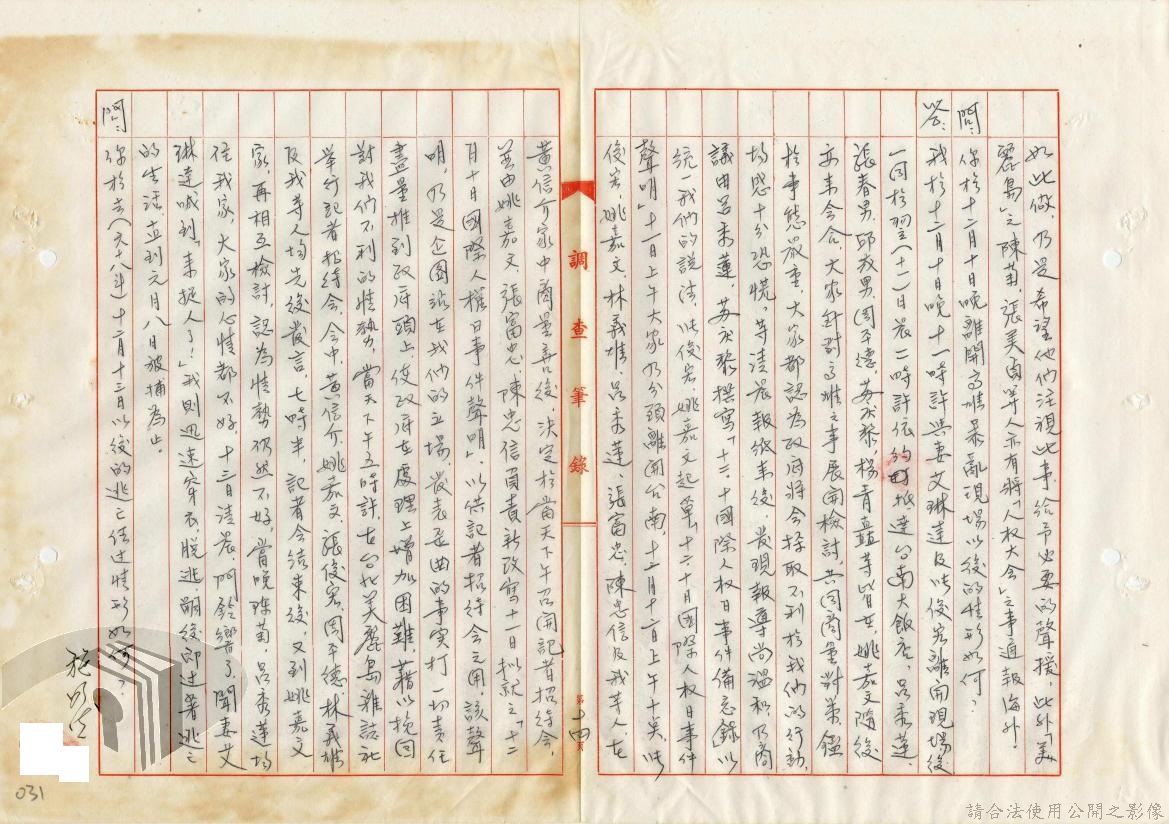 如此做，乃是希望他们注視此事，給予必要的聲援，此外「美
麗島」之陳菊，張美貞等人亦有將「人权大会」之事通報海外。
問：你於十二月十日晚離開高雄暴亂現場以後的情形如何？
答：我於十二月十日晚十一時許與妻艾琳達及張俊宏離開現場後
一同於翌（十一）日晨一時許依約抵達台南大飯店，呂秀蓮，
張春男，邱茂男，周平德，蘇秋黎，楊青矗等皆在，姚嘉文隨後
亦来会合，大家針對高雄之事展開檢討，共同商量对策，鑑
於事態嚴重，大家都認為政府將会採取不利於我们的行動，
均感十分恐慌，等清晨報纸来後，發現報導尚溫和，乃商
議由呂秀蓮，蘇秋黎撰寫「十二、十國際人权日事件備忘錄」以
統一我们的說法，張俊宏，姚嘉文起草「十二、十日國際人权日事件
聲明」十一日上午大家乃分頭離開台南，十二月十二日上午十点，張
俊宏，姚嘉文，林義雄，呂秀蓮，張富忠，陳忠信及我等人，在
調查筆錄
第十四頁
黃信介家中商量善後，決定於當天下午召開記者招待会，
並由姚嘉文，張富忠，陳忠信負責新改寫十一日拟就之「十二
月十日國際人權日事件聲明」，以供記者招待会之用，該聲
明，乃是企圖站在我们的立場，發表歪曲的事实，把一切責任
盡量推到政府頭上，使政府在處理上增加困難，藉以挽回
对我们不利的情勢，當天下午五時許，在台北美麗島雜誌社
举行記者招待会，会中，黃信介，姚嘉文，張俊宏，周平德，林義雄
及我等人均先後發言，七時半，記者会結束後，又到姚嘉文
家，再相互檢討，認為情勢仍然不好，當晚陳菊，呂秀蓮均
住我家，大家的心情都不好，十三日清晨，門鈴響了，聞妻艾
琳達喊到「来捉人了！」我則迅速穿衣，脫逃，嗣後即过著逃亡
的生活，直到元月八日被捕為止。
問：你於去（六十八年）十二月十三日以後的逃亡经过情形如何？
施明德
031
請合法使用公開之影像